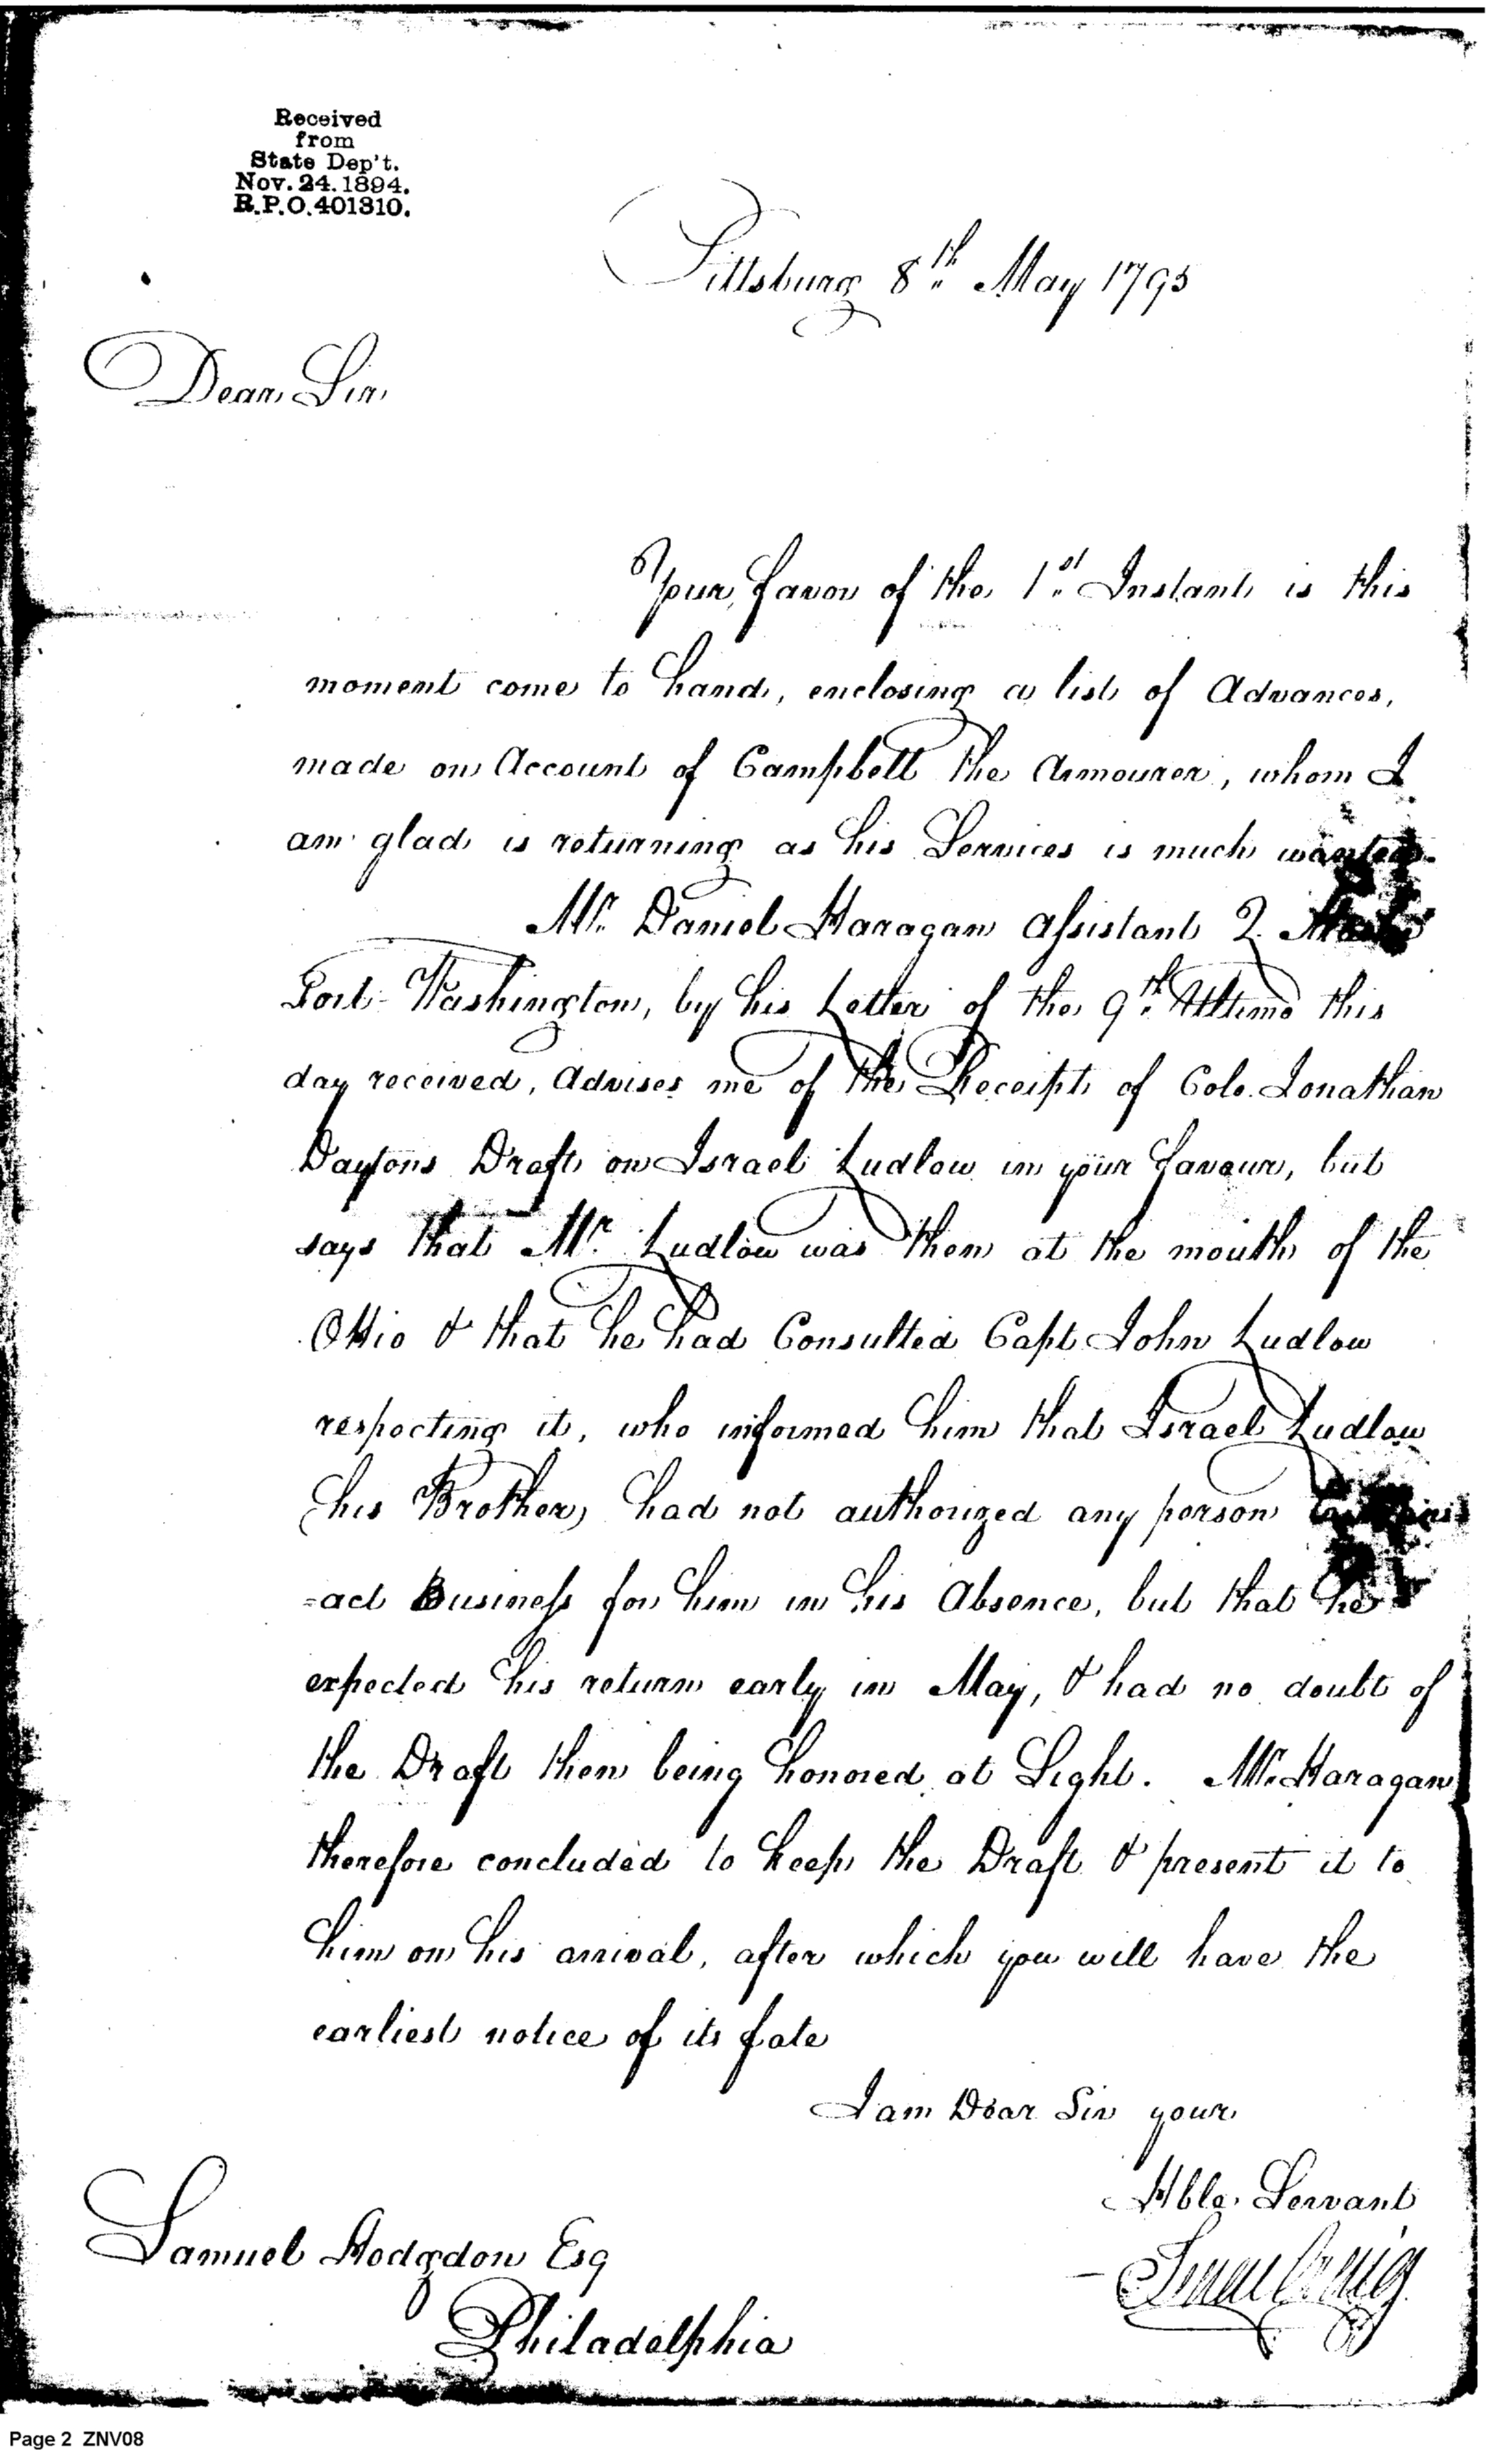 Received
from
State Dep't.
Nov. 24. 1894.
R.P.O. 401310.
Pittsburg 8th May 1795
Dear Sir
Your favor of the 1st Instant is this
moment come to hand, enclosing a list of Advances,
made on Account of Campbell the Armourer, whom I
am glad is returning as his Services is much wanted.
Mr. Daniel Haragan Assistant Q.
Fort Washington, by his Letter of the 9th Ultimo this
day received, Advises me of the Receipt of Colo. Jonathan
Daytons Draft on Israel Ludlow in your favour, but
says that Mr. Ludlow was then at the mouth of the
Ohio & that he had Consulted Capt John Ludlow
respecting it, who informed him that Israel Ludlow
(his Brother) had not authorized any person
=act Business for him in his Absence, but that he
expected his return early in May, & had no doubt of
the Draft then being honored at Sight. Mr. Haragan
therefore concluded to keep the Draft & present it to
him on his arrival, after which you will have the
earliest notice of its fate
I am Dear Sir your
Hble. Servant
Isaac Craig
Samuel Hodgdon Esq
Philadelphia
Page 2 ZNV08